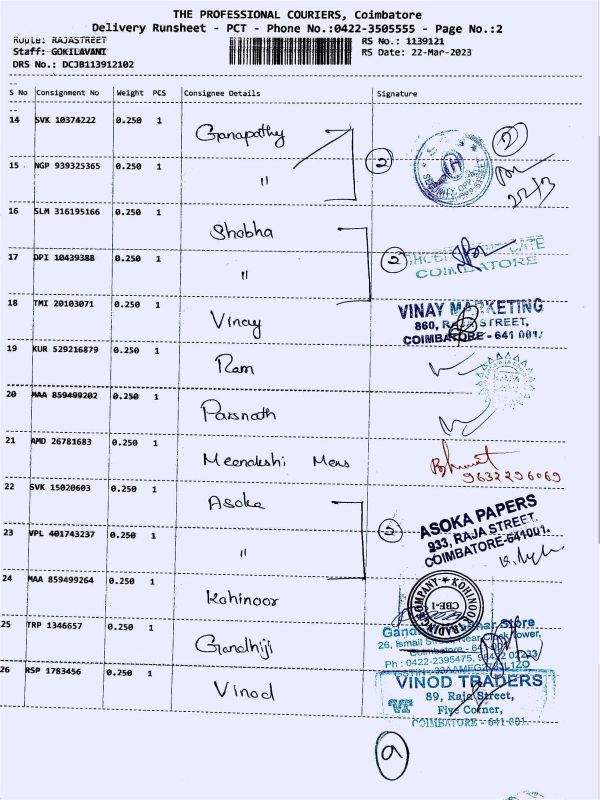 THE PROFESSIONAL COURIERS, Coimbatore
Delivery Runsheet - PCT - Phone No.:0422-3505555 - Page No.:2
Route: RAJASTREET
RS No.: 1139121
Staff: GOKILAVANI
RS Date: 22-Mar-2023
DRS No.: DCJB113912102
S No Consignment No Weight PCS Consignee Details Signature
14 SVK 10374222 0.250 1 Ganapathy
2
2
15 NGP 939325365 0.250 1 "
22/3
16 SLM 316195166 0.250 1 Shobha
17 DPI 10439388 0.250 1 "
2
CATE
COIMBATORE
18 TMI 20103071 0.250 1 Vinay
VINAY MARKETING
860, RAJA STREET,
COIMBATORE - 641 001.
19 KUR 529216879 0.250 1 Ram
20 MAA 859499202 0.250 1 Parsnath
21 AMD 26781683 0.250 1 Meenakshi Mens
Bharat
9632296069
22 SVK 15020603 0.250 1 Asoka
2
ASOKA PAPERS
933, RAJA STREET,
COIMBATORE-641001.
23 VPL 401743237 0.250 1 "
24 MAA 859499264 0.250 1 Kohinoor
KOHINOOR TRADING COMPANY
CBE-1
25 TRP 1346657 0.250 1 Gandhiji
Store
26, Ismail Street, Near Clock Tower,
Coimbatore - 641 001
Ph : 0422-2395475,
26 RSP 1783456 0.250 1 Vinod
VINOD TRADERS
VT
89, Raja Street,
Five Corner,
COIMBATORE - 641 001.
9